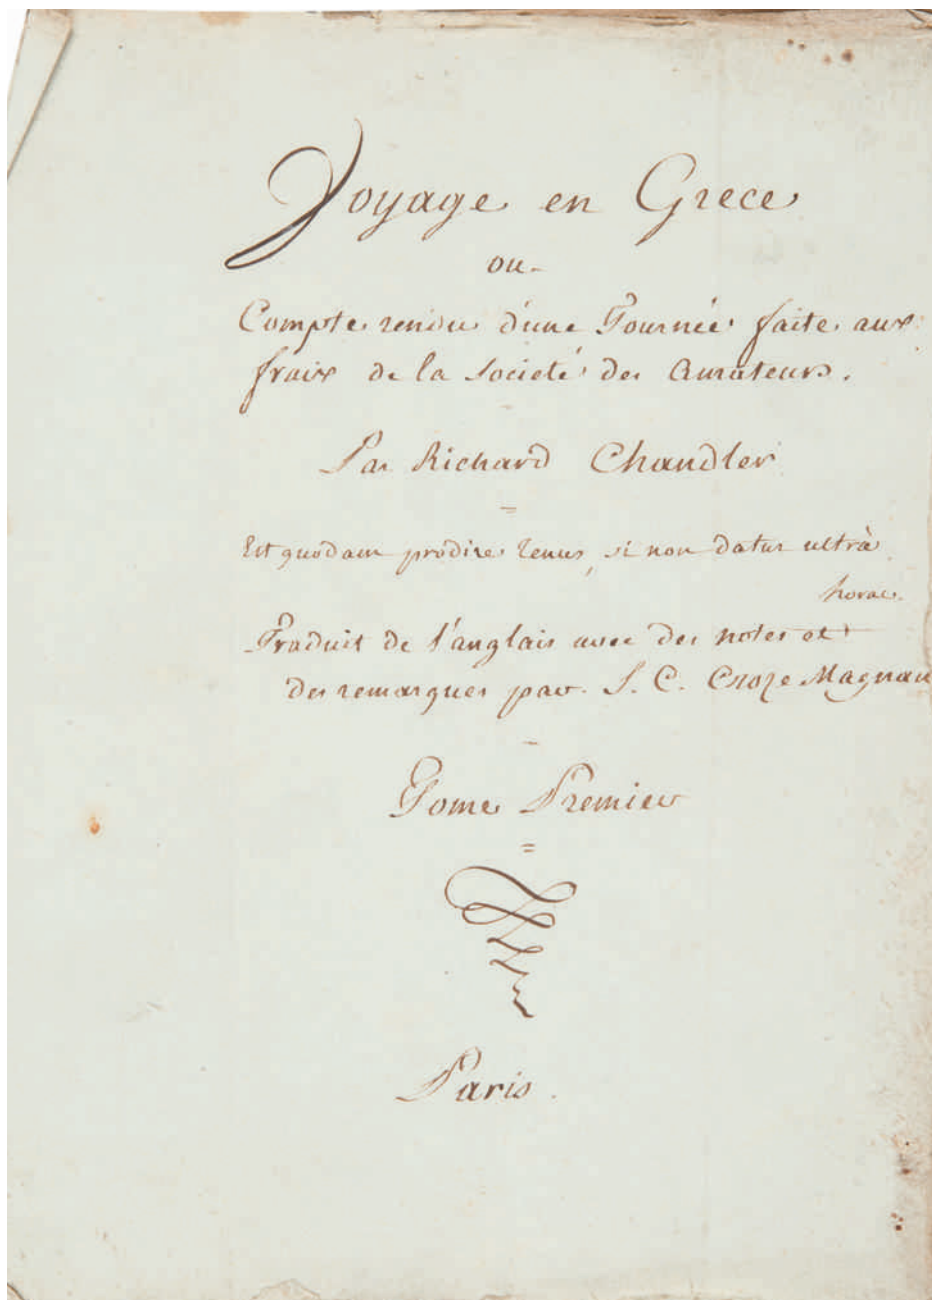 Voyage en Grece
ou
Compte rendu d'une Tournée faite aux
fraix de la Societé des Amateurs.
Par Richard Chandler
Est quodam prodire tenus, si non datur ultrà
horac.
Traduit de l'anglais avec des notes et
des remarques par S. C. Croze Magnan
Tome Premier
Paris.